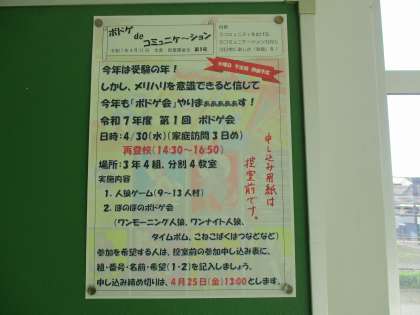 ボドゲ
de
コミュニケーション
今年は受験の年！
しかし、メリハリを意識できると信じて
今年も「ボドゲ会」やりまぁぁぁぁぁす！
令和７年度 第１回 ボドゲ会
日時：4/30(水)(家庭訪問３日め)
再登校(14:30～16:50)
場所：３年４組、分割４教室
実施内容
1．人狼ゲーム(９～13人村)
2．ほのぼのボドゲ会
(ワンモーニング人狼、ワンナイト人狼、
タイムボム、こねこばくはつなどなど)
参加を希望する人は、控室前の参加申し込み表に、
組・番号・名前・希望(１・２)を記入しましょう。
申し込み締め切りは、４月25日(金)13:00とします。
申し込み用紙は
控室前です。